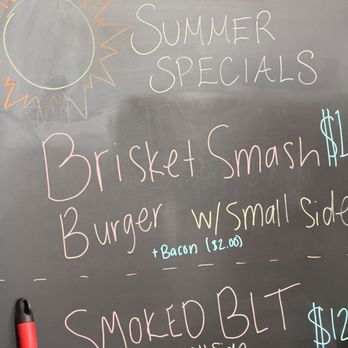 SUMMER
SPECIALS
Brisket Smash $1
Burger w/ Small Side
+ Bacon ($2.00)
SMOKED BLT $12